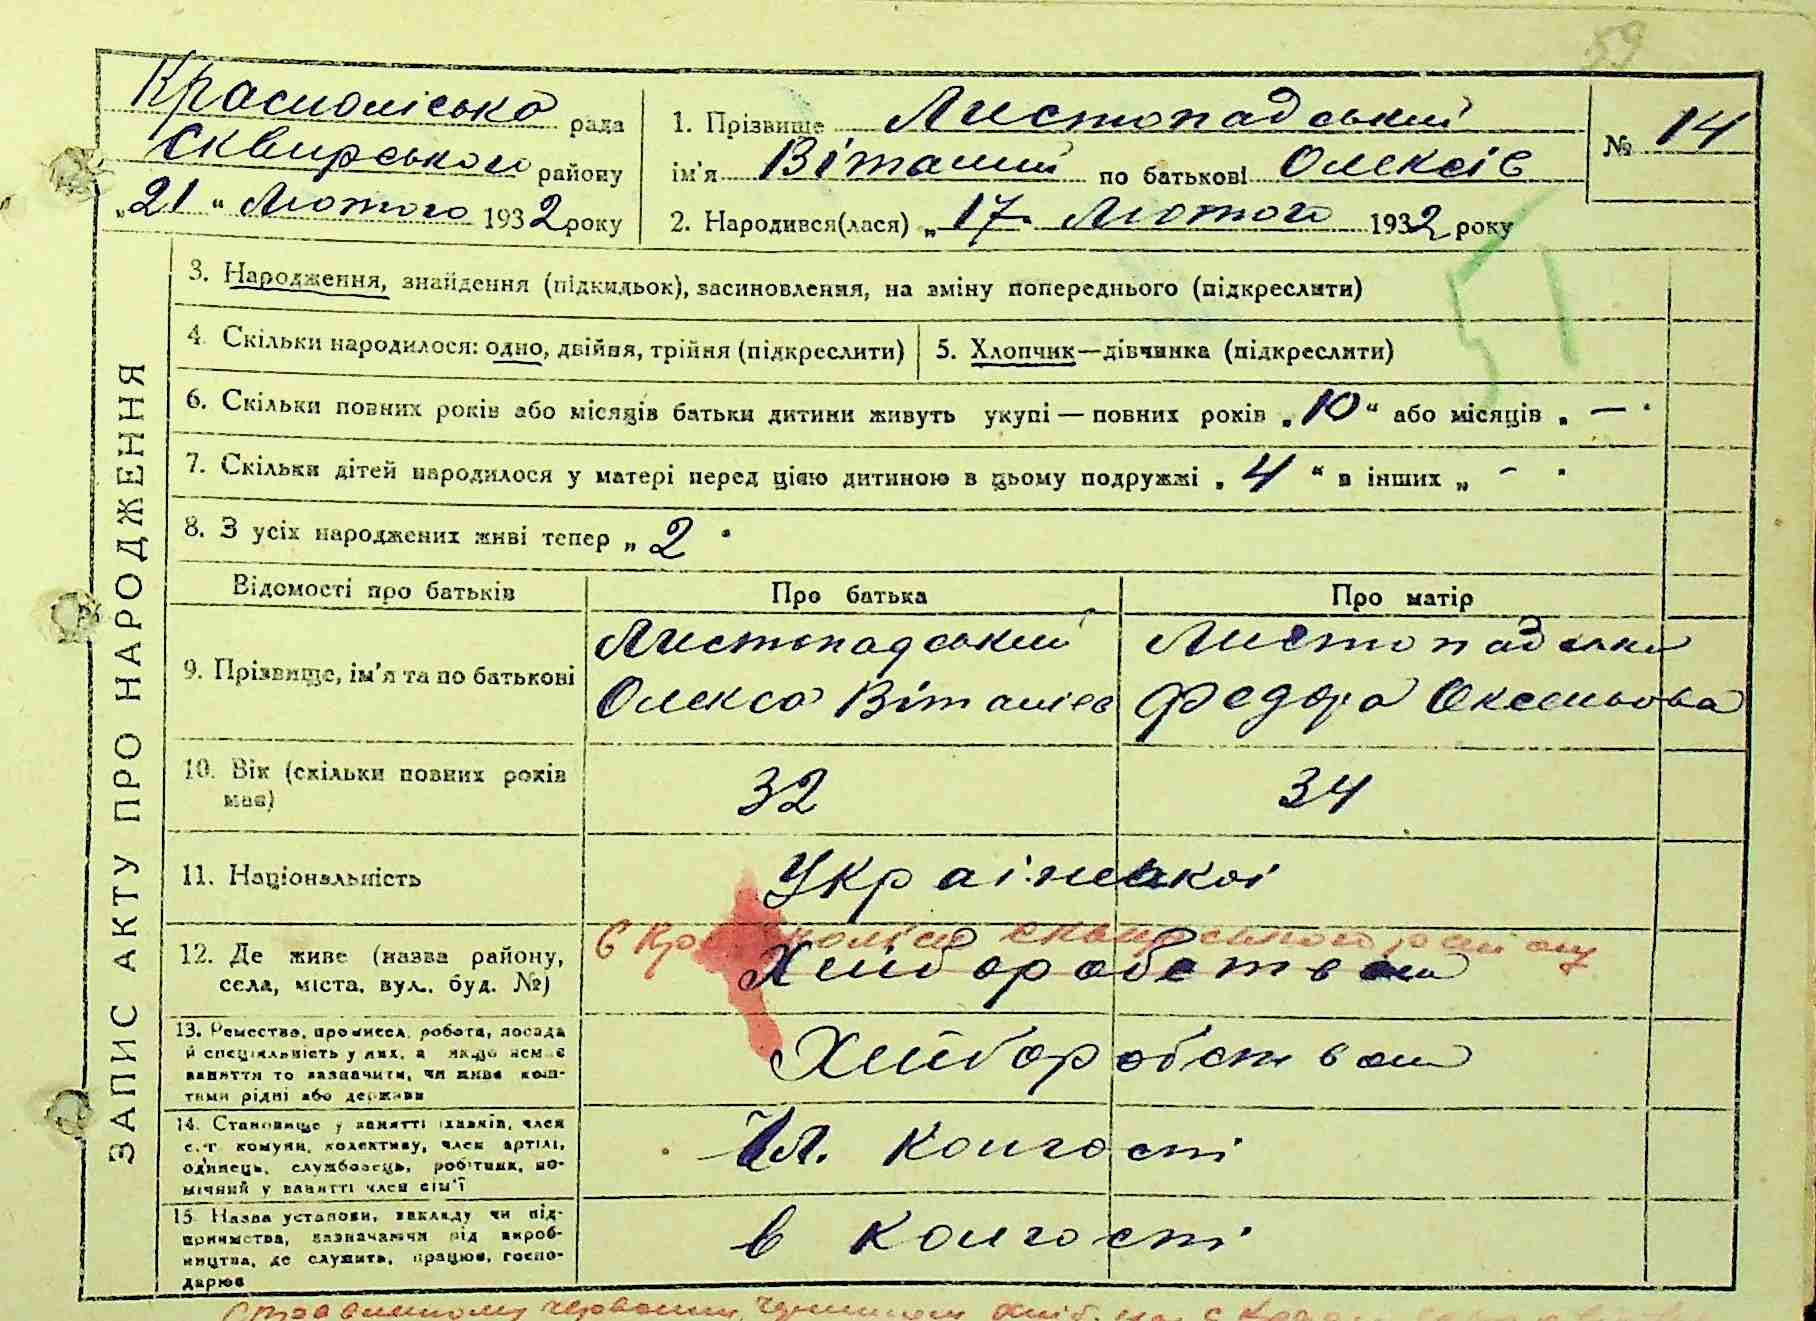 59
Краснолісько рада
Сквирського району
„21“ Лютого 1932 року
1. Прізвище Листопадський
ім'я Віталий по батькові Олексів
2. Народився(лася) „17. Лютого 1932 року
№ 14
51
ЗАПИС АКТУ ПРО НАРОДЖЕННЯ
3. Народження, знайдення (підкидьок), засиновлення, на зміну попереднього (підкреслити)
4. Скільки народилося: одно, двійня, трійня (підкреслити)
5. Хлопчик—дівчинка (підкреслити)
6. Скільки повних років або місяців батьки дитини живуть укупі — повних років „10“ або місяців „ —
7. Скільки дітей народилося у матері перед цією дитиною в цьому подружжі „4“ в інших „ -
8. З усіх народжених живі тепер „2
Відомості про батьків
Про батька
Про матір
9. Прізвище, ім'я та по батькові
Листопадський
Олекса Віталіев
Листопадська
Федора Оксентьова
10. Вік (скільки повних років
має)
32
34
11. Національність
Українськоі
12. Де живе (назва району,
села, міста, вул., буд. №)
в сквирського району
Хлиборобством
13. Ремество, промисел, робота, посада
й спеціяльність у них, а якщо немає
заняття то зазначити, чи живе кош-
тами рідні або держави
Хлиборобством
14. Становище у занятті (хазяїн, член
с.-г комуни, колективу, член артілі,
одинець, службовець, робітник, по-
мічний у занятті член сім'ї
Чл. колгоспі
15. Назва установи, закладу чи під-
приємства, зазначаючи рід вироб-
ництва, де служить, працює, госпо-
дарює
в колгоспі